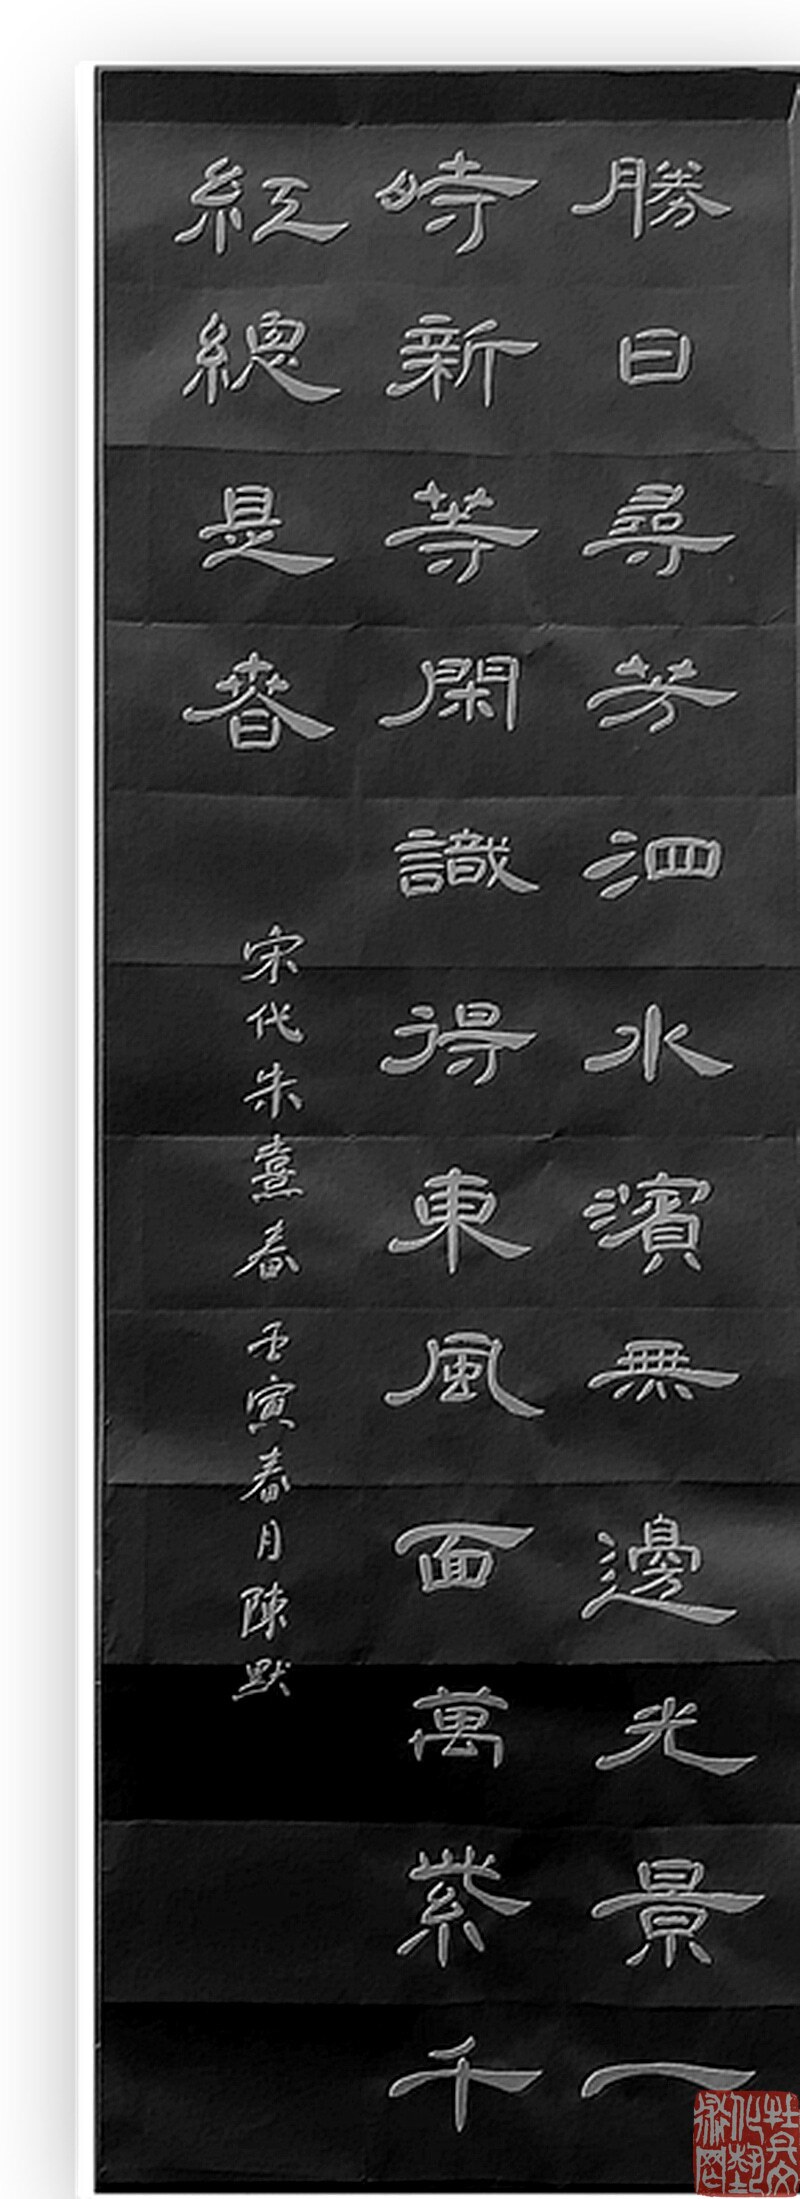 勝日尋芳泗水濱無邊光景一
時新等閑識得東風面萬紫千
紅總是春
宋代朱熹春 壬寅春月陳默